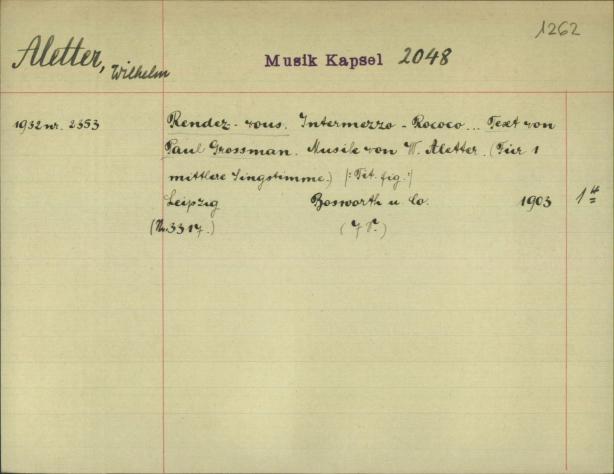 1262
Aletter, Wilhelm
Musik Kapsel 2048
1932 nr. 2353
Rendez-vous. Intermezzo-Rococo... Text von
Paul Grossman. Musik von W. Aletter. (Für 1
mittlere Singstimme.) /: Tit. fig. :/
Leipzig Bosworth u. Co. 1903 1 4°
(Nr. 3317.) (7 S.)